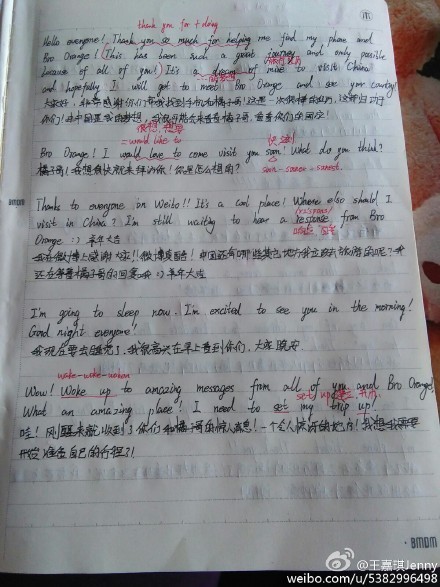 thank you for + doing
Hello everyone! Thank you so much for helping me find my phone and
Bro Orange! (This has been such a great journey and only possible
because of all of you!) It's a dream of mine to visit China
and hopefully I will get to meet Bro Orange and see your country!
大家好，非常感谢你们帮我找到手机和橘子哥！这是一次很棒的旅行，这都归功于
你们！去中国是我的梦想，我很可能会来
= would like to
Bro Orange! I would love to come visit you soon! What do you think?
橘子哥！我想很快就来拜访你！你是怎么想的？
soon - sooner - soonest
Thanks to everyone on Weibo!! It's a cool place! Where else should I
visit in China? I'm still waiting to hear a response from Bro
Orange :) 羊年大吉
我在微博上感谢大家!! 微博度酷！中国还有哪些其它地方我应该去旅游的呢？我
还在等着橘子哥的回复 :) 羊年大吉
I'm going to sleep now. I'm excited to see you in the morning!
Good night everyone!
我现在要去睡觉了，我很高兴在早上看到你们，大家晚安
wake-woke-woken
Wow! Woke up to amazing messages from all of you and Bro Orange!
set up
What an amazing place! I need to set my trip up!
哇！刚醒来就收到了你们和橘子哥的惊人消息！一个令人惊讶的地方！我想我需要
开始准备自己的行程?!
BMDM
BMDM
@王嘉琪Jenny
weibo.com/u/5382996498